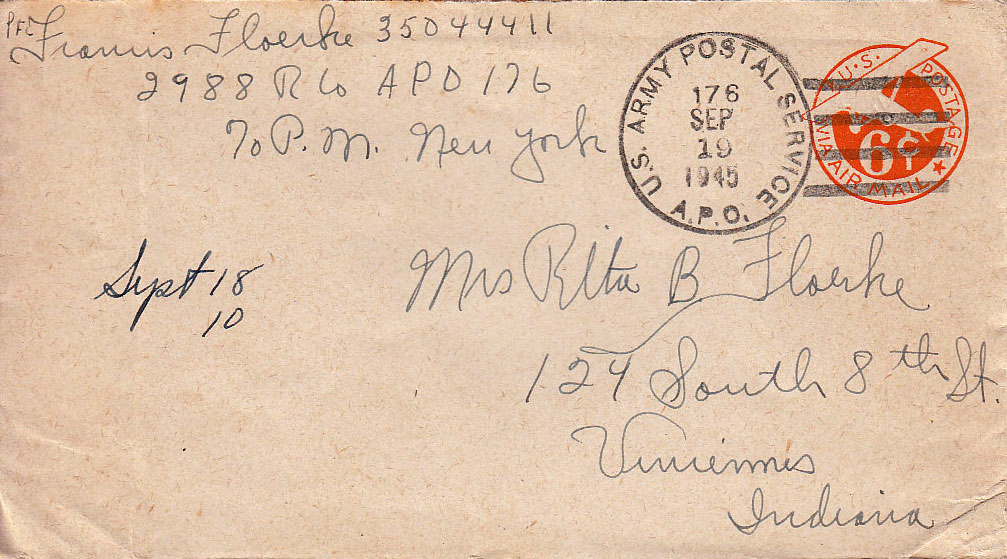 Pfc Francis Floerke 35044411
2988 R Co APO 176
% P.M. New York
U.S. ARMY POSTAL SERVICE
176
SEP
19
1945
A.P.O.
U.S. POSTAGE
6¢
VIA AIR MAIL
Sept 18
10
Mrs Rita B Floerke
124 South 8th St.
Vincennes
Indiana